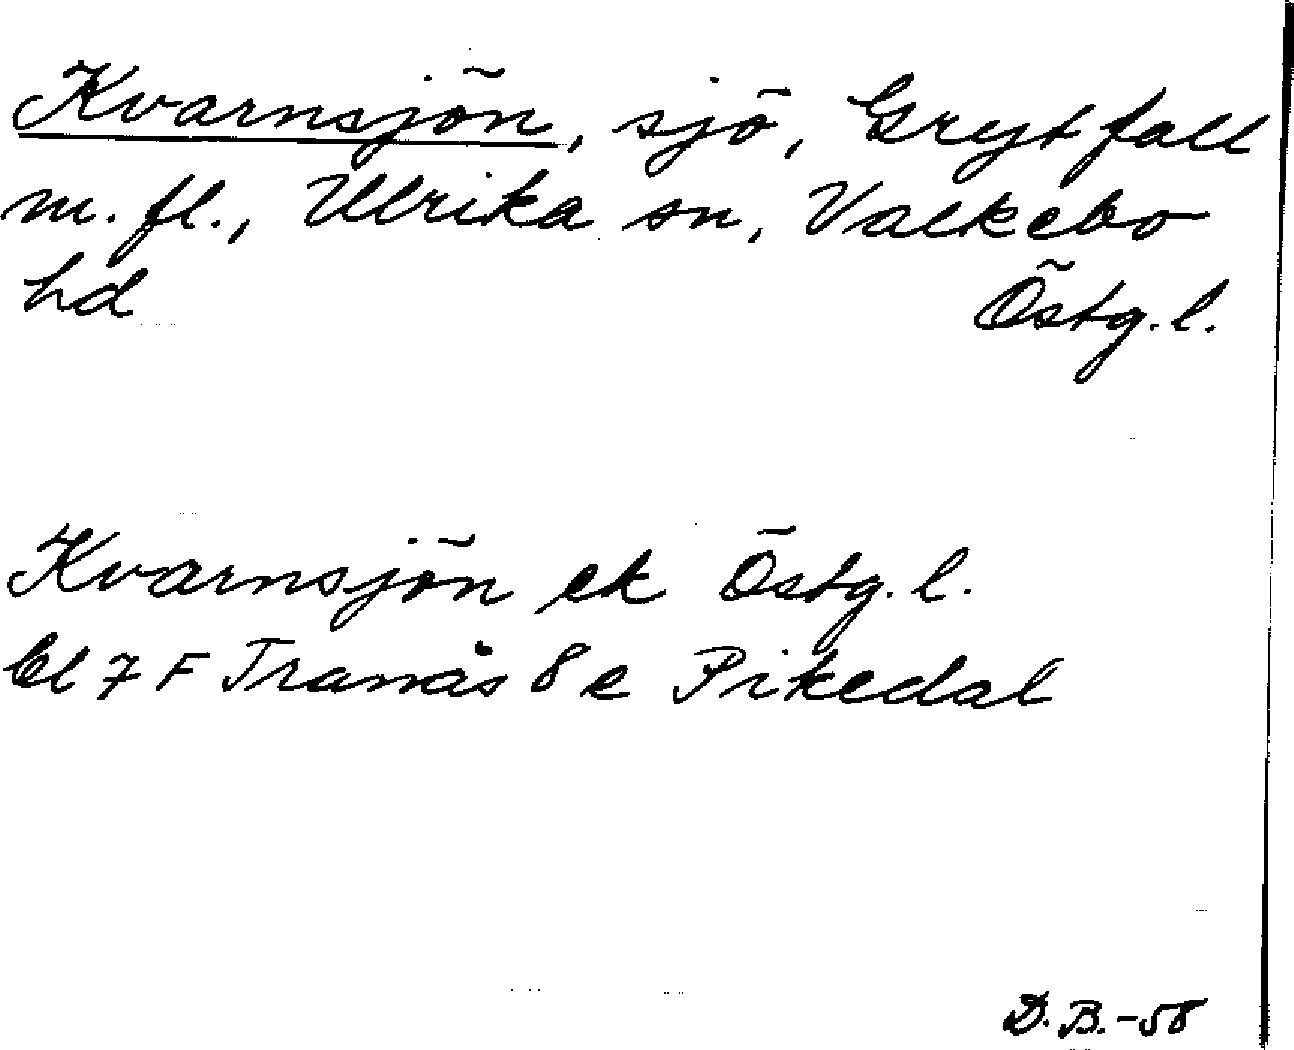 Kvarnsjön, sjö, Grytfall
m. fl., Ulrika sn, Valkebo
hd Östg. l.
Kvarnsjön ek Östg. l.
bl 7 F Tranås 8 e Pikedal
D. B. -58